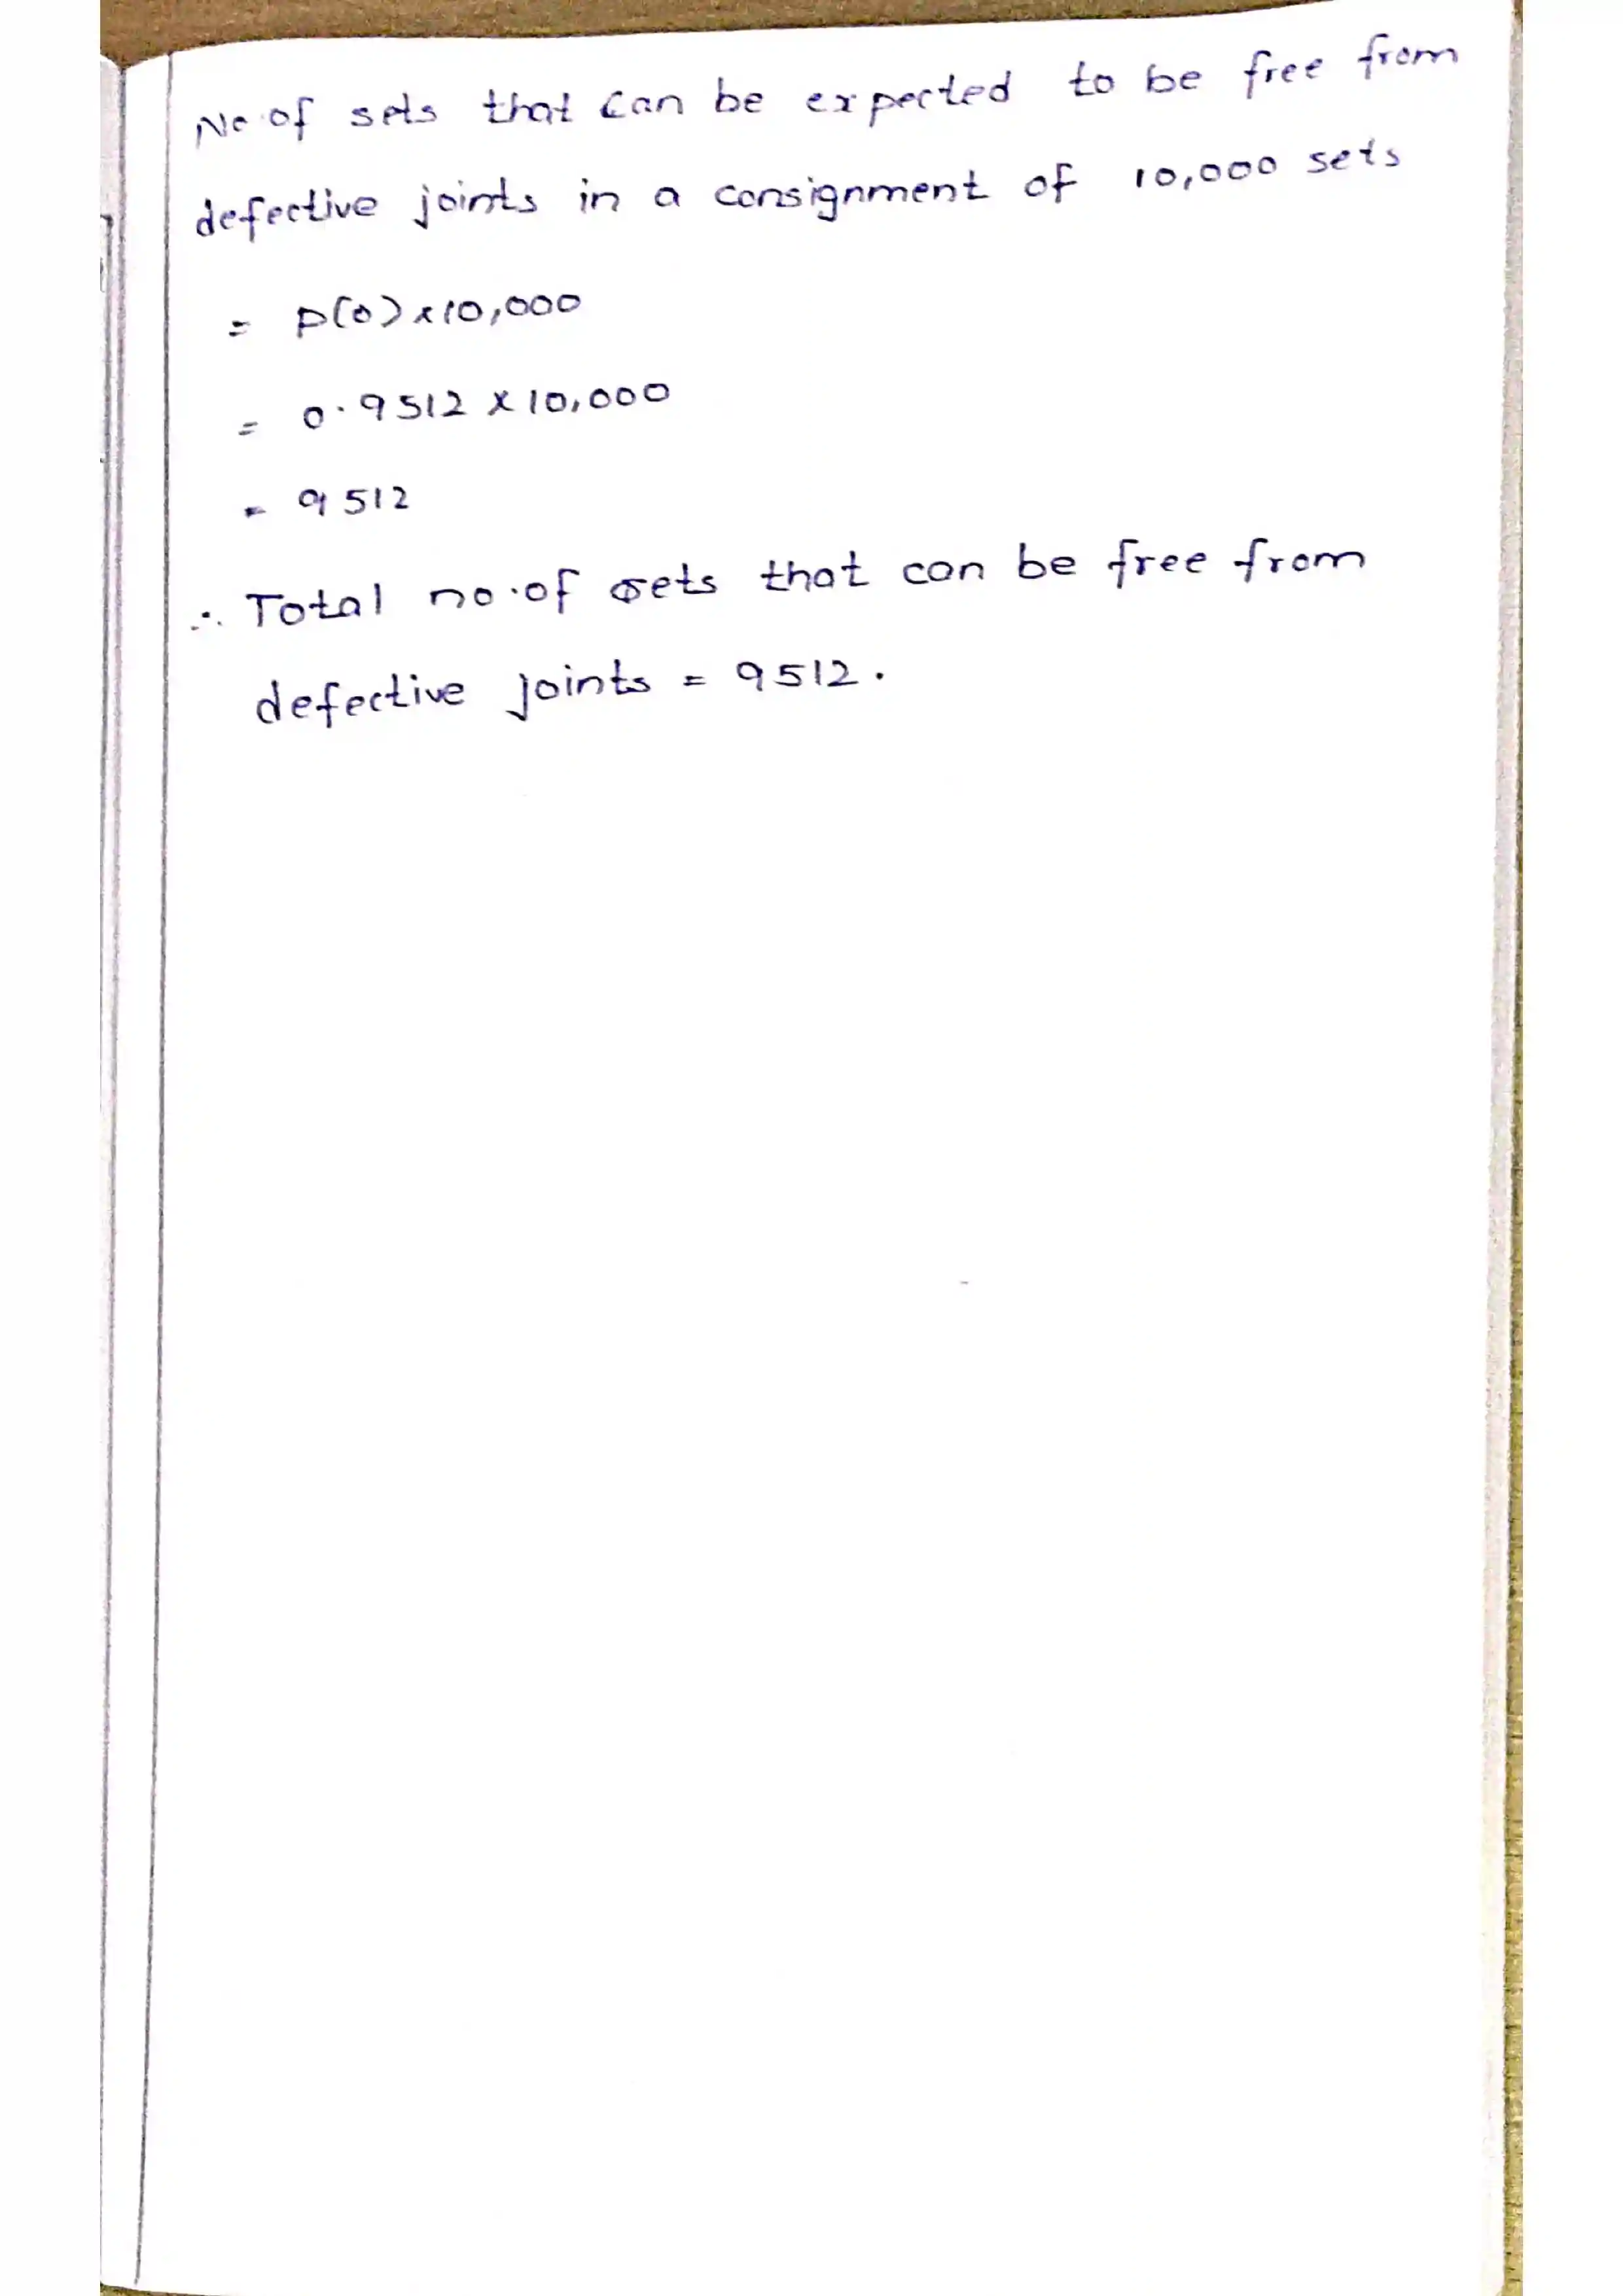 No.of sets that can be expected to be free from
defective joints in a consignment of 10,000 sets
= P(0) x 10,000
= 0.9512 x 10,000
= 9512
∴ Total no.of sets that can be free from
defective joints = 9512.